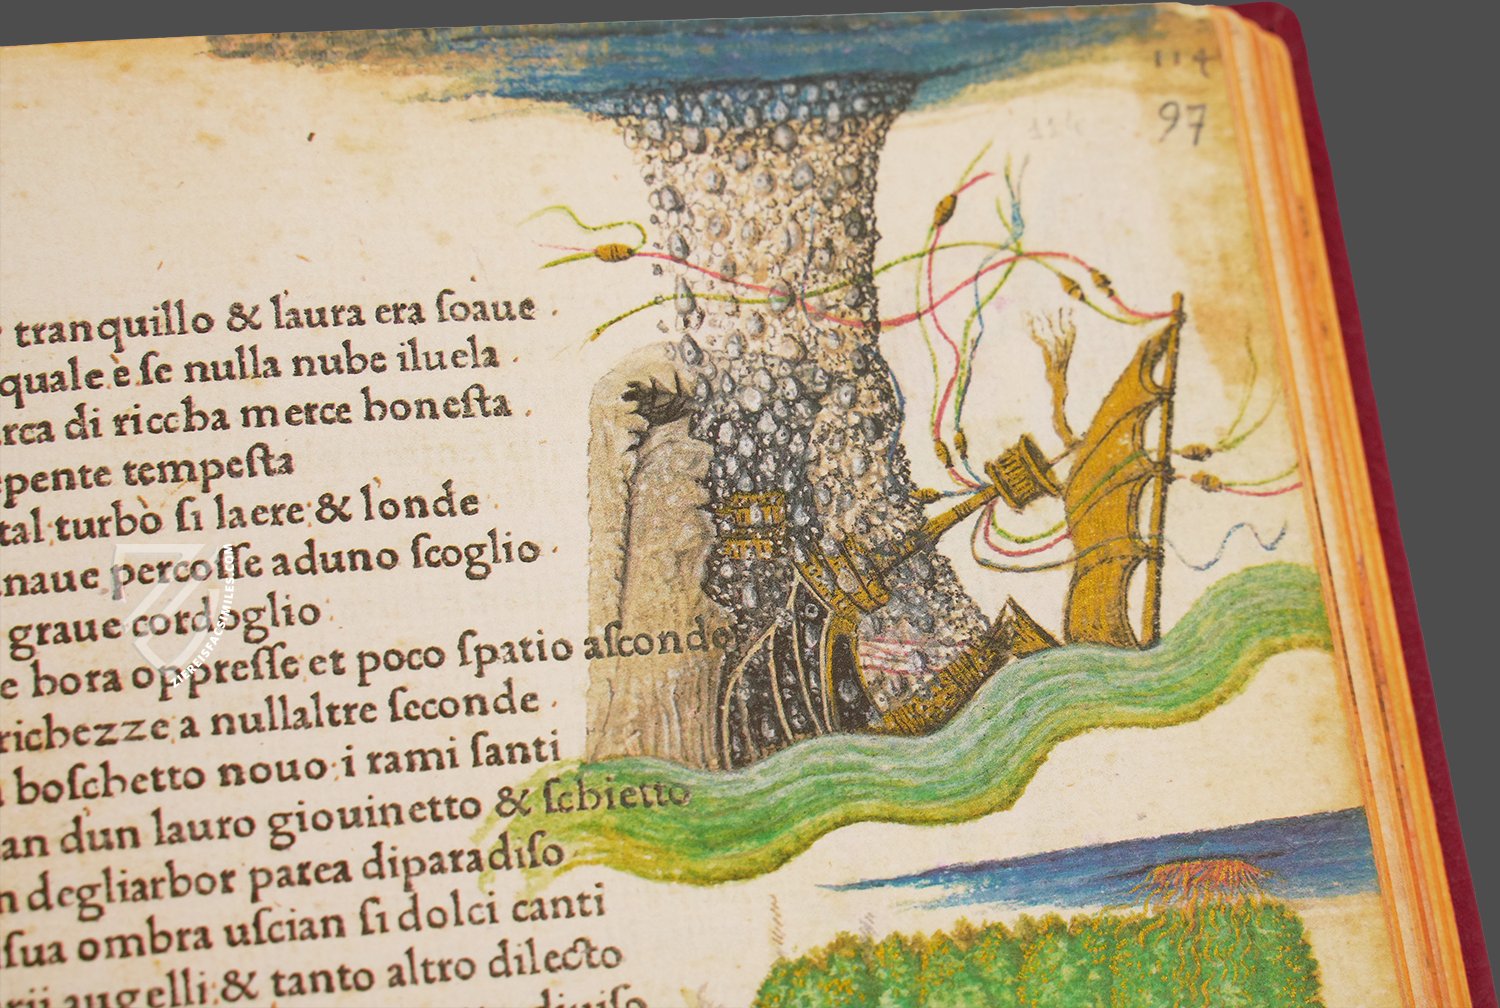 114
97
114
tranquillo & laura era ſoaue .
quale è ſe nulla nube iluela .
rca di riccha merce honeſta .
epente tempeſta
tal turbò ſi laere & londe .
naue percoſſe aduno ſcoglio .
graue cordoglio .
e hora oppreſſe et poco ſpatio aſconde
richezze a nullaltre ſeconde .
boſchetto nouo i rami ſanti
an dun lauro giouinetto & ſchietto
n degliarbor parea diparadiſo
ſua ombra uſcian ſi dolci canti
rii augelli & tanto altro dilecto
diuiſo
ZIEREISFACSIMILES.COM